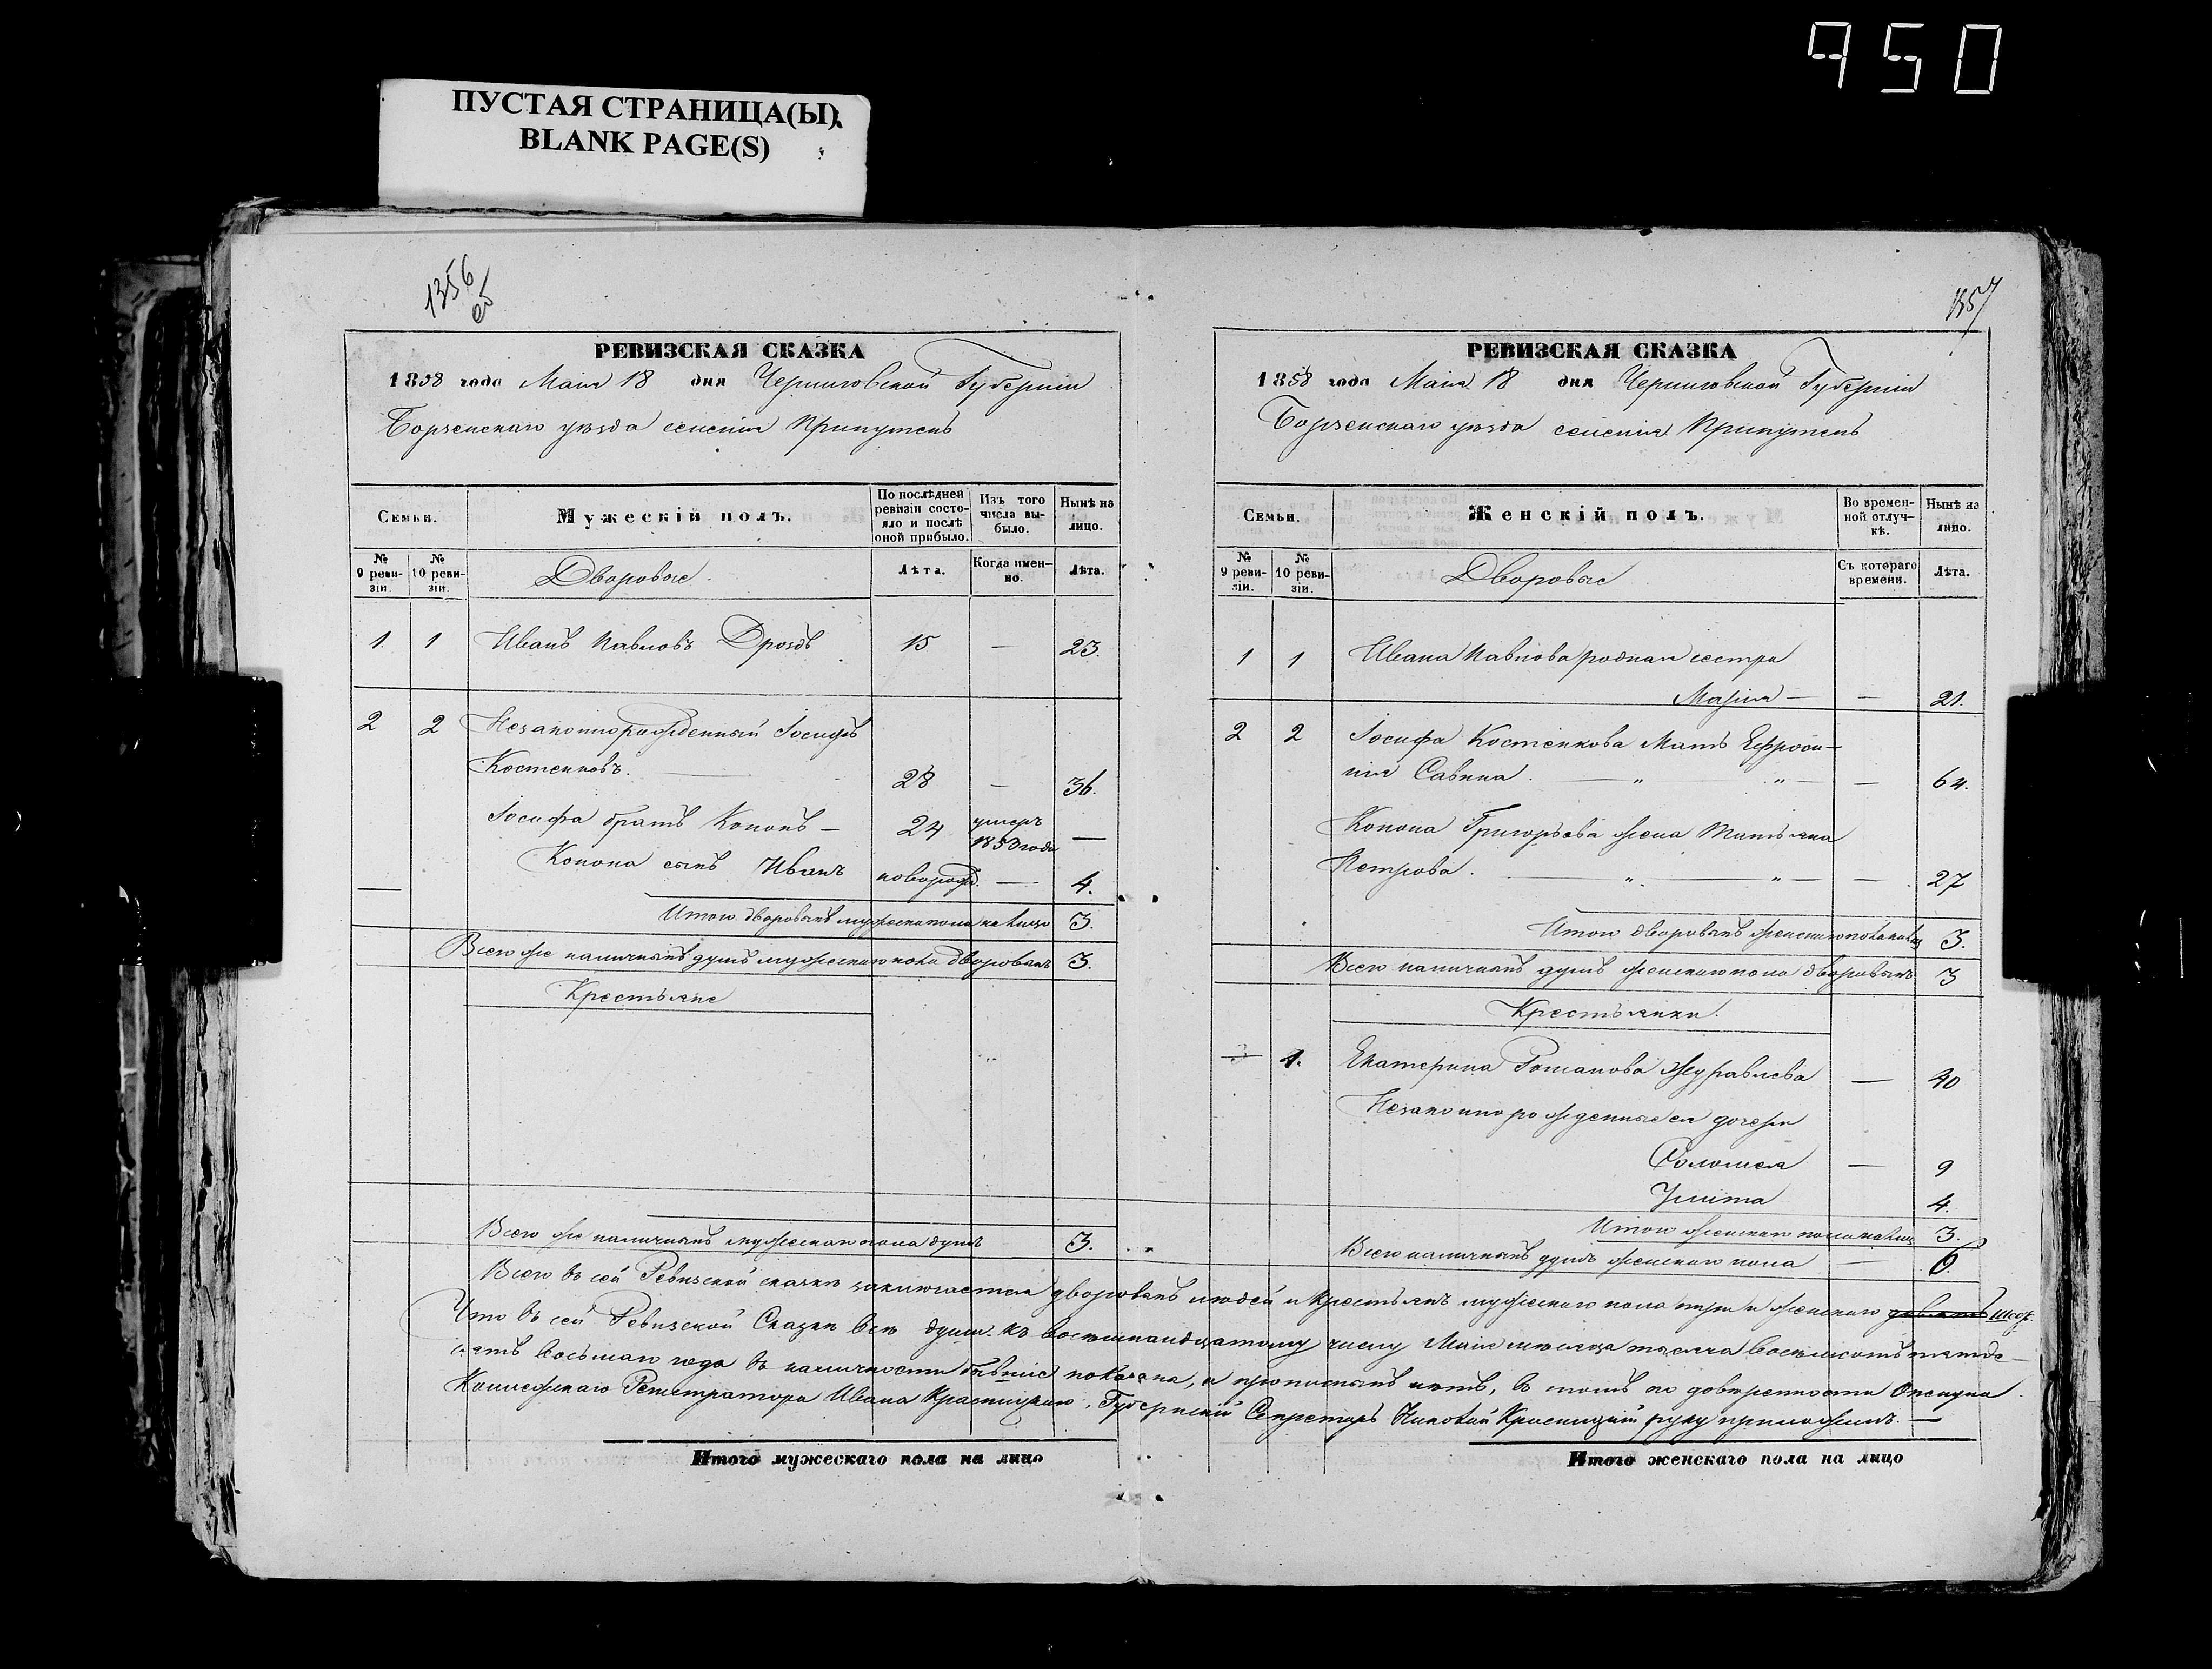 950
ПУСТАЯ СТРАНИЦА(Ы)
BLANK PAGE(S)
1356
об
РЕВИЗСКАЯ СКАЗКА
1858 года Маія 18 дня Черниговской Губерніи
Борзенскаго уѣзда селенія Припутень
Семьи.
Мужескій полъ.
По послѣдней ревизіи состояло и послѣ оной прибыло.
Изъ того числа выбыло.
Нынѣ на лицо.
№ 9 ревизіи.
№ 10 ревизіи.
Дворовые
Лѣта.
Когда именно.
Лѣта.
1. 1 Иванъ Павловъ Дроздъ 15 — 23.
2 2 Незаконнорожденный Іосифъ
Костенковъ. 28 — 36.
Іосифа братъ Кононъ — 24 умеръ 1853 года —
Конона сынъ Иванъ новорожд. — 4.
Итого дворовыхъ мужескаго пола на лицо 3.
Всего же наличныхъ душъ мужескаго пола дворовыхъ 3.
Крестьяне
Всего же наличныхъ мужескаго пола душъ 3.
1357
РЕВИЗСКАЯ СКАЗКА
1858 года Маія 18 дня Черниговской Губерніи
Борзенскаго уѣзда селенія Припутень
Семьи.
Женскій полъ.
Во временной отлучкѣ.
Нынѣ на лицо.
№ 9 ревизіи.
№ 10 ревизіи.
Дворовые
Съ котораго времени.
Лѣта.
1 1 Ивана Павлова родная сестра
Марія — — 21.
2 2 Іосифа Костенкова Мать Ефроси-
нія Савина. — " — " — — 64.
Конона Григорьева жена Татьяна
Петрова. — " — " — — 27
Итого дворовыхъ женскаго пола на лицо 3.
Всего наличныхъ душъ женскаго пола дворовыхъ 3
Крестьянки.
3 1. Екатерина Романова Журавлева — 40
Незаконнорожденные ея дочери
Соломея — 9
Улита 4.
Итого женскаго пола на лицо 3.
Всего наличныхъ душъ женскаго пола — 6.
Всего въ сей Ревизской сказкѣ заключается дворовыхъ людей и крестьянъ мужескаго пола три и женскаго девять шесть
Что въ сей Ревизской Сказкѣ всѣ души къ восемнандцатому числу Маія мѣсяца тысяча восемьсотъ пятьде-
сятъ восьмаго года въ наличности бывшіе показана, и прописныхъ нѣтъ, въ томъ по довѣренности Опекуна
Коллежскаго Регистратора Ивана Красницкаго, Губернскій Секретарь Николай Красницкій руку приложилъ. —
Итого мужескаго пола на лицо
Итого женскаго пола на лицо